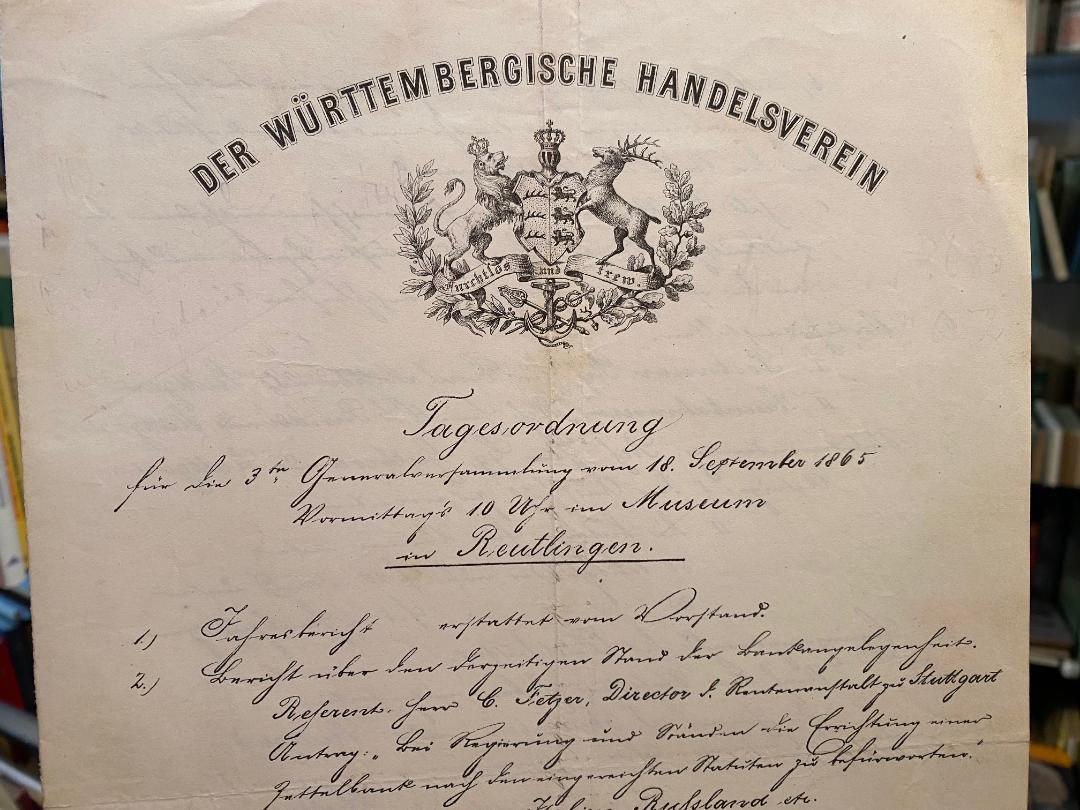 DER WÜRTTEMBERGISCHE HANDELSVEREIN
furchtlos und trew.
Tagesordnung
für die 3te Generalversammlung vom 18. September 1865
Vormittags 10 Uhr im Museum
in Reutlingen.
1.) Jahresbericht erstattet vom Vorstand.
2.) Bericht über den derzeitigen Stand der Bankangelegenheit.
Referent: Herr C. Fetzer, Director d. Rentenanstalt zu Stuttgart
Antrag: „Bei Regierung und Ständen die Errichtung einer
Zettelbank nach den eingereichten Statuten zu befürworten."
Italien, Russland etc.